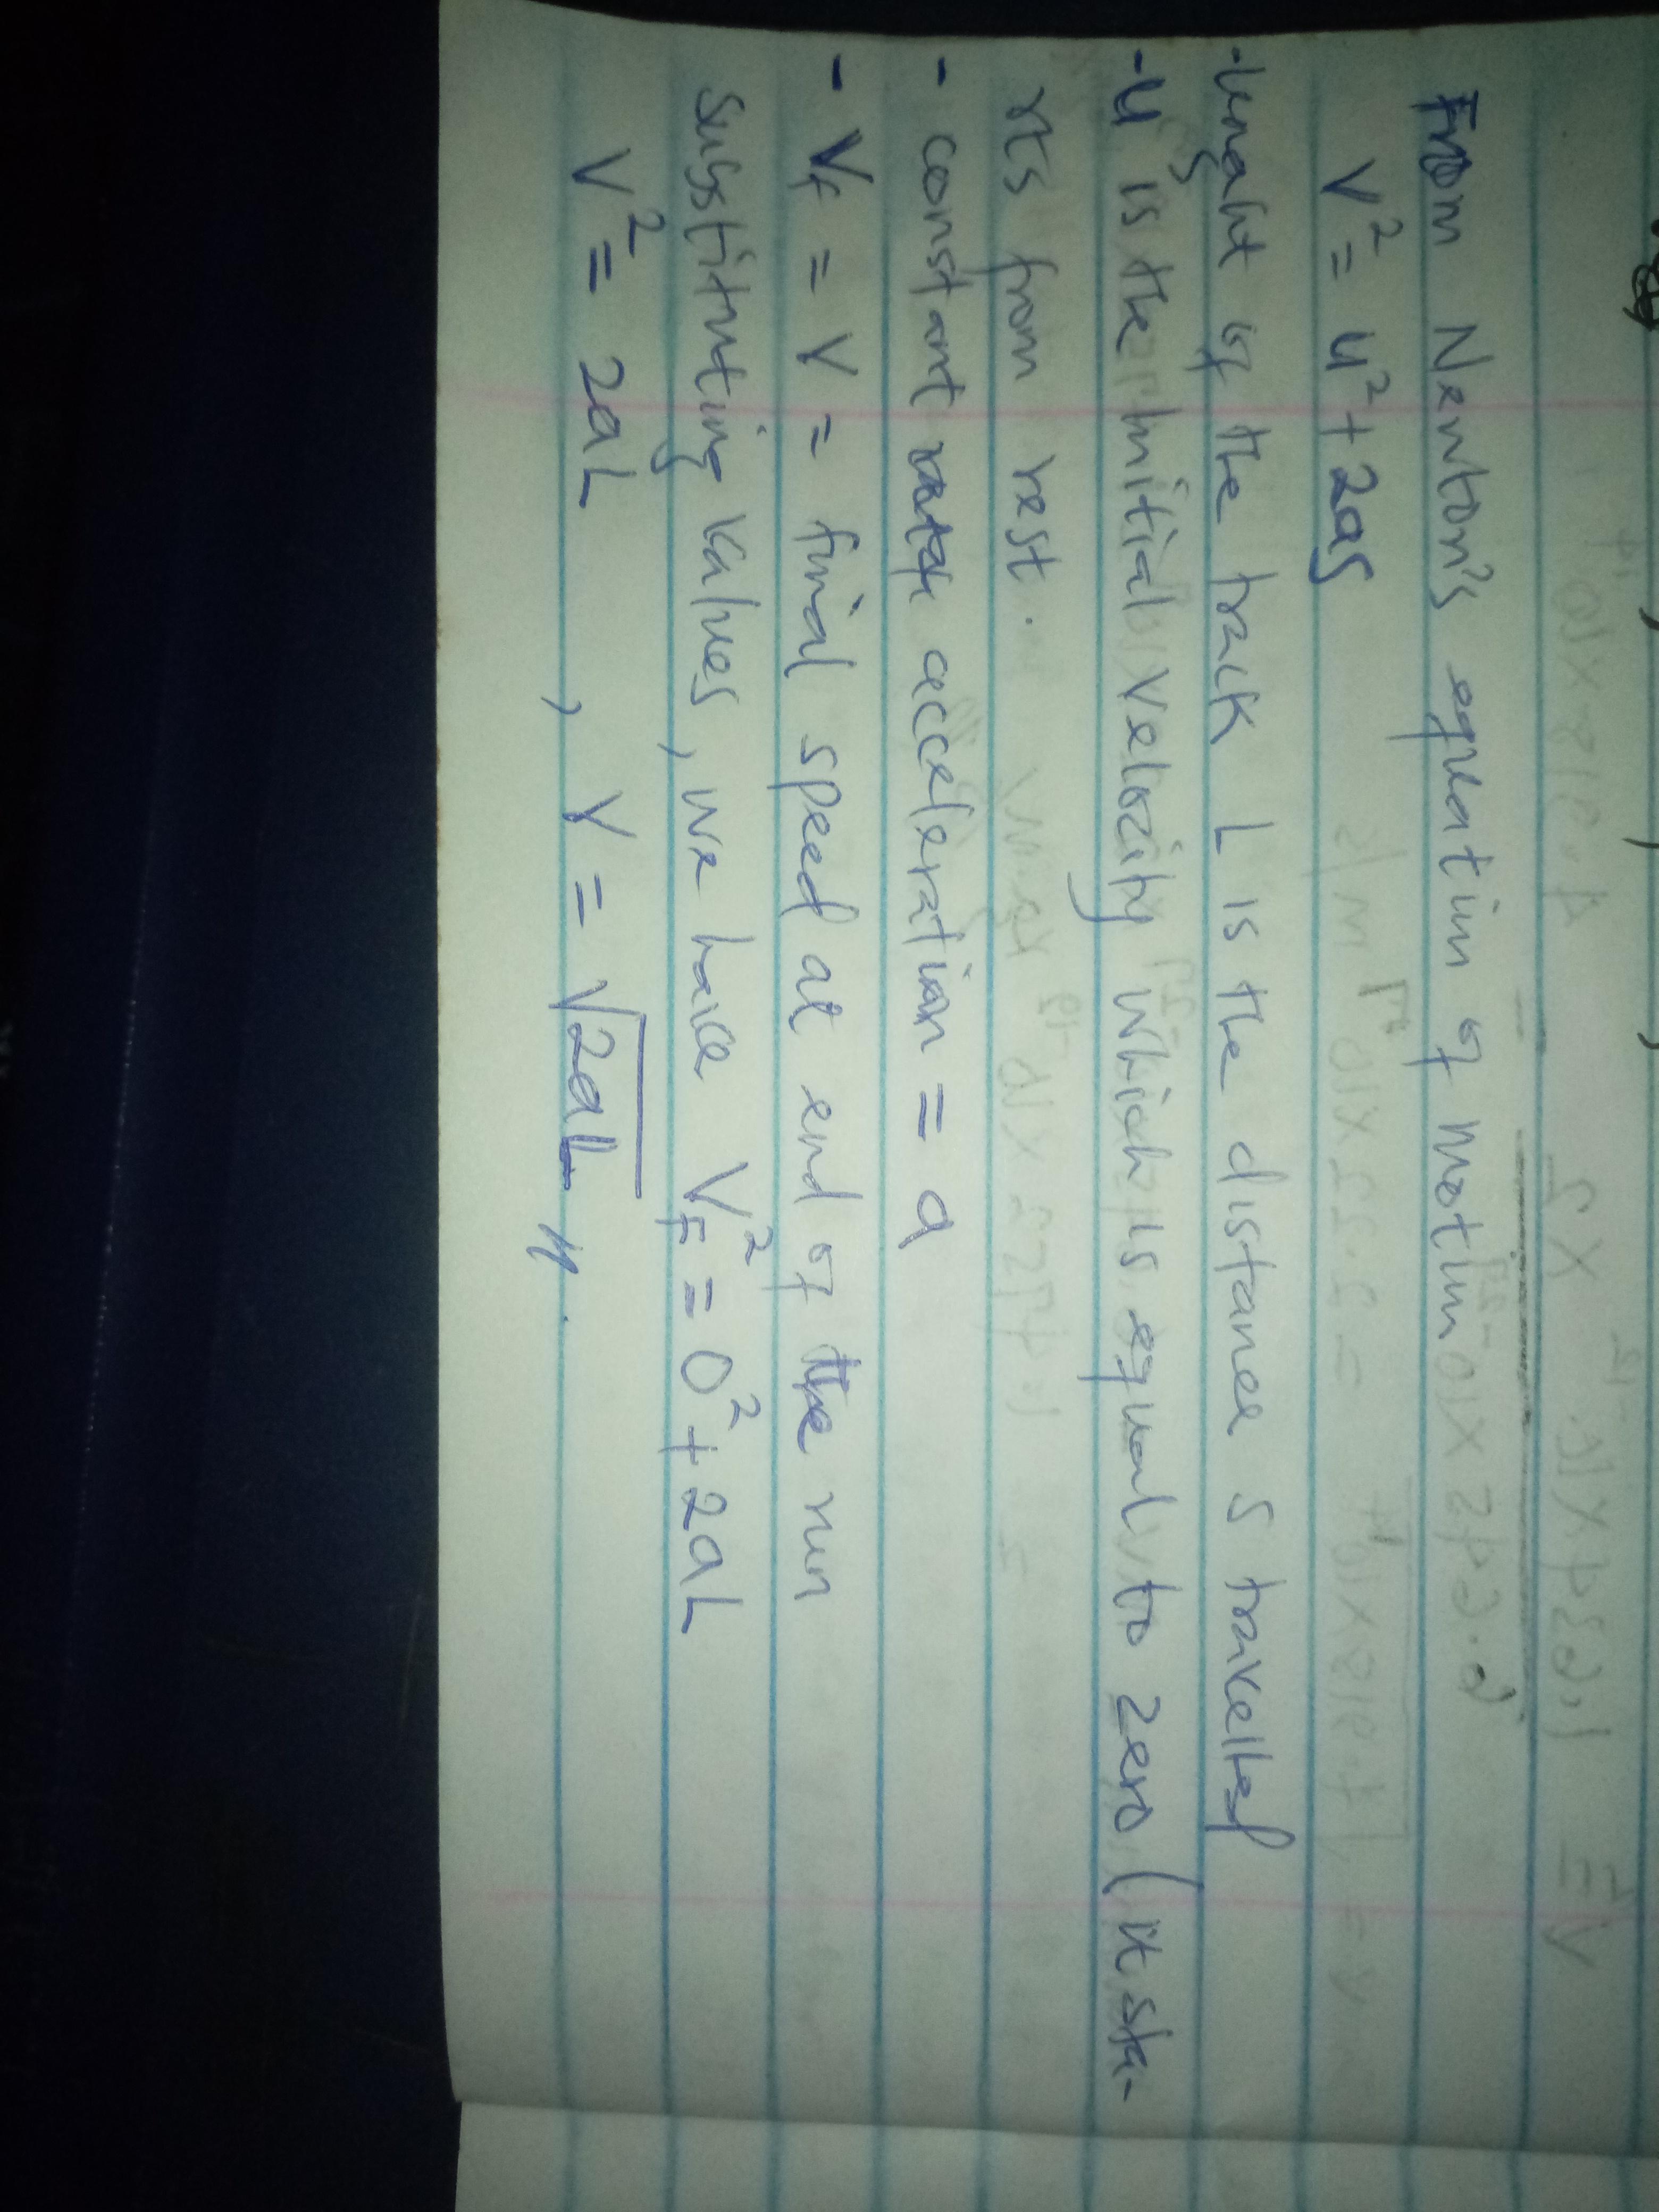 From Newton's equation of motion
V² = u² + 2as
-Lenght of the track L is the distance s travelled
-u is the initial velocity which is equal to zero (it sta-
rts from rest.
- constant acceleration = a
- Vf = V = final speed at end of the run
Substituting values, we have V_F² = 0² + 2aL
V² = 2aL , V = √2aL //.